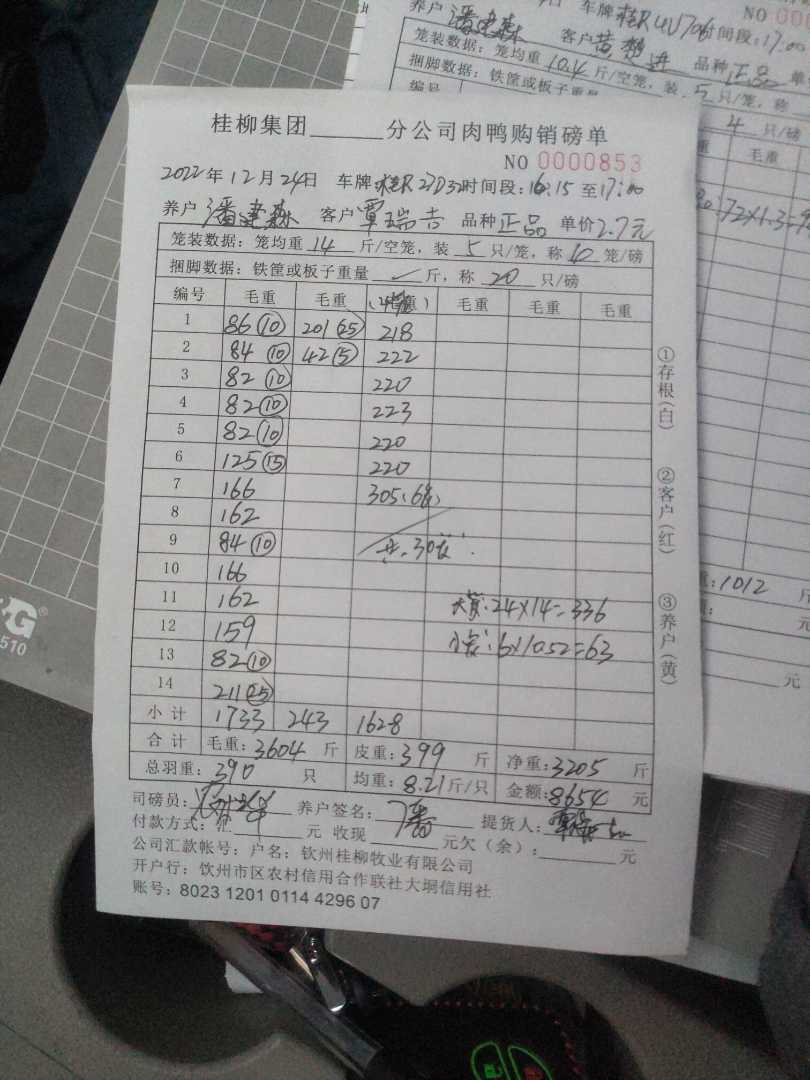 养户 潘建森 客户 黄 进 品种 正品 单
车牌 桂R 时间段:17:00
NO 00
笼装数据: 笼均重 10.4 斤/空笼, 装 5 只/笼, 称
捆脚数据: 铁筐或板子重量
4 只/磅
编号
毛重
桂柳集团______分公司肉鸭购销磅单
NO 0000853
2022年12月24日 车牌 桂R 时间段: 16:15 至 17:00
养户 潘建森 客户 覃瑞吉 品种 正品 单价 2.7元
笼装数据: 笼均重 14 斤/空笼, 装 5 只/笼, 称 10 笼/磅
捆脚数据: 铁筐或板子重量 ✓ 斤, 称 20 只/磅
编号 毛重 毛重 毛重 毛重 毛重
1 86(10) 201(25) 218
2 84(10) 42(5) 222
3 82(10) 220
4 82(10) 223
5 82(10) 220
6 125(15) 220
7 166 305(6笼)
8 162
9 84(10) 共:30笼
10 166
11 162 大笼:24×14=336
12 159 小笼:6×10.52=63
13 82(10)
14 211(25)
小计 1733 243 1628
合计 毛重:3604 斤 皮重:399 斤 净重:3205 斤
总羽重:390 只 均重:8.21斤/只 金额:8654 元
司磅员: 养户签名:潘 提货人:
付款方式:汇______元 收现______元欠(余):______元
公司汇款帐号: 户名: 钦州桂柳牧业有限公司
开户行: 钦州市区农村信用合作联社大垌信用社
账号: 8023 1201 0114 4296 07
①存根(白)
②客户(红)
③养户(黄)
重:1012 斤
元
元
G
510